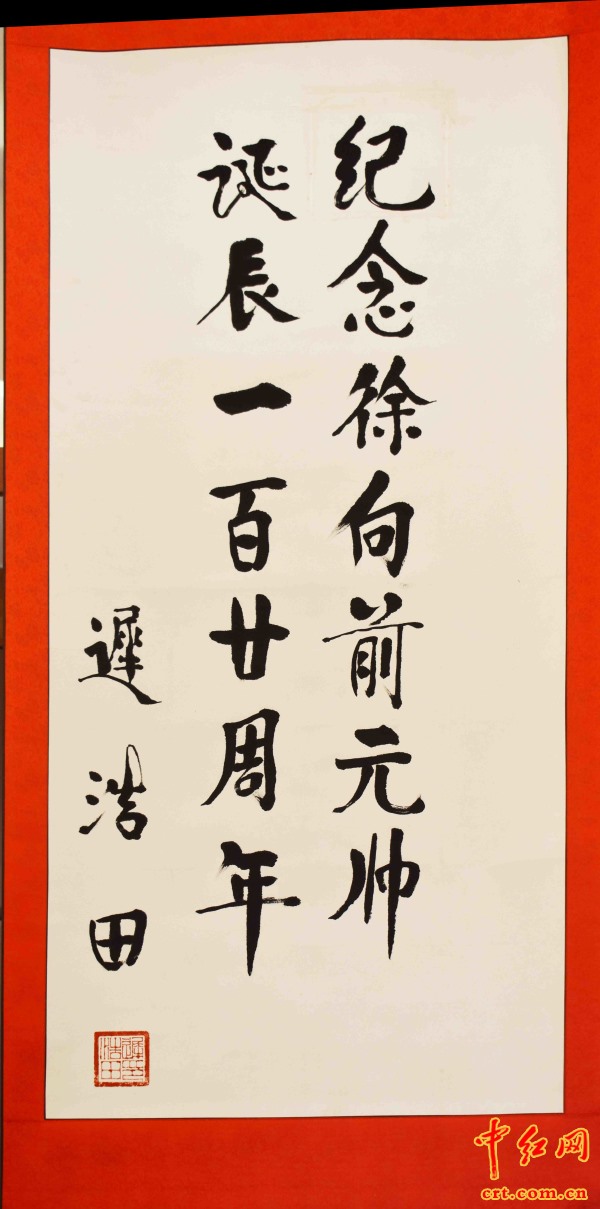 纪念徐向前元帅
诞辰一百廿周年
遲浩田
中红网
crt.com.cn